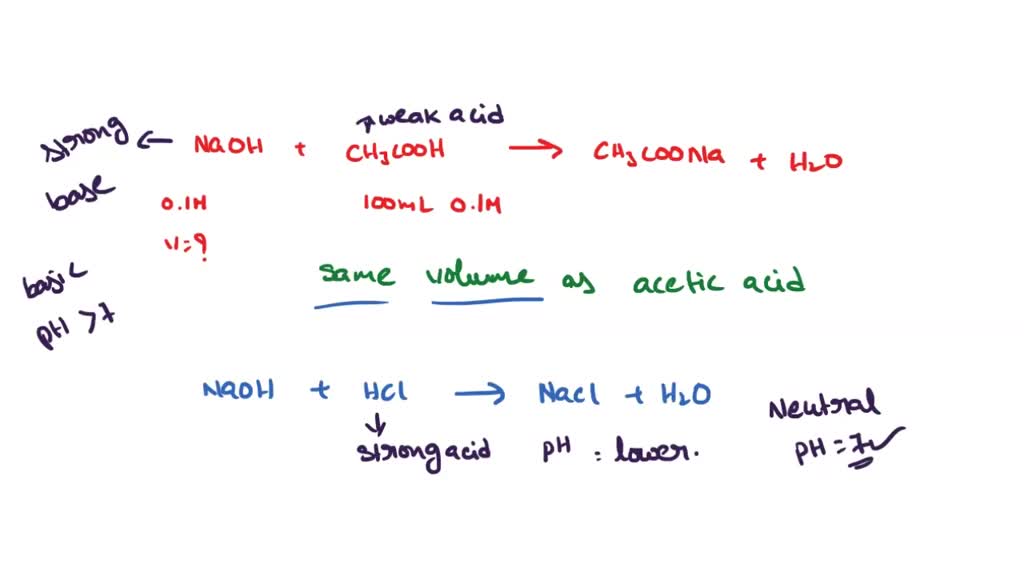 weak acid
strong ← NaOH + CH3COOH → CH3COONa + H2O
base
0.1M 100mL 0.1M
V=?
basic
pH >7
same volume as acetic acid
NaOH + HCl → NaCl + H2O
Neutral
strong acid pH : lower.
pH = 7